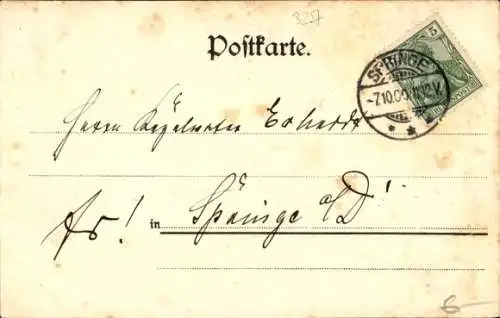 3257
Postkarte.
5
SPRINGE
-7.10.00.11-12.V.
Herrn Kögelwerten Erhardt
Fr!
in Springe a/D
6-